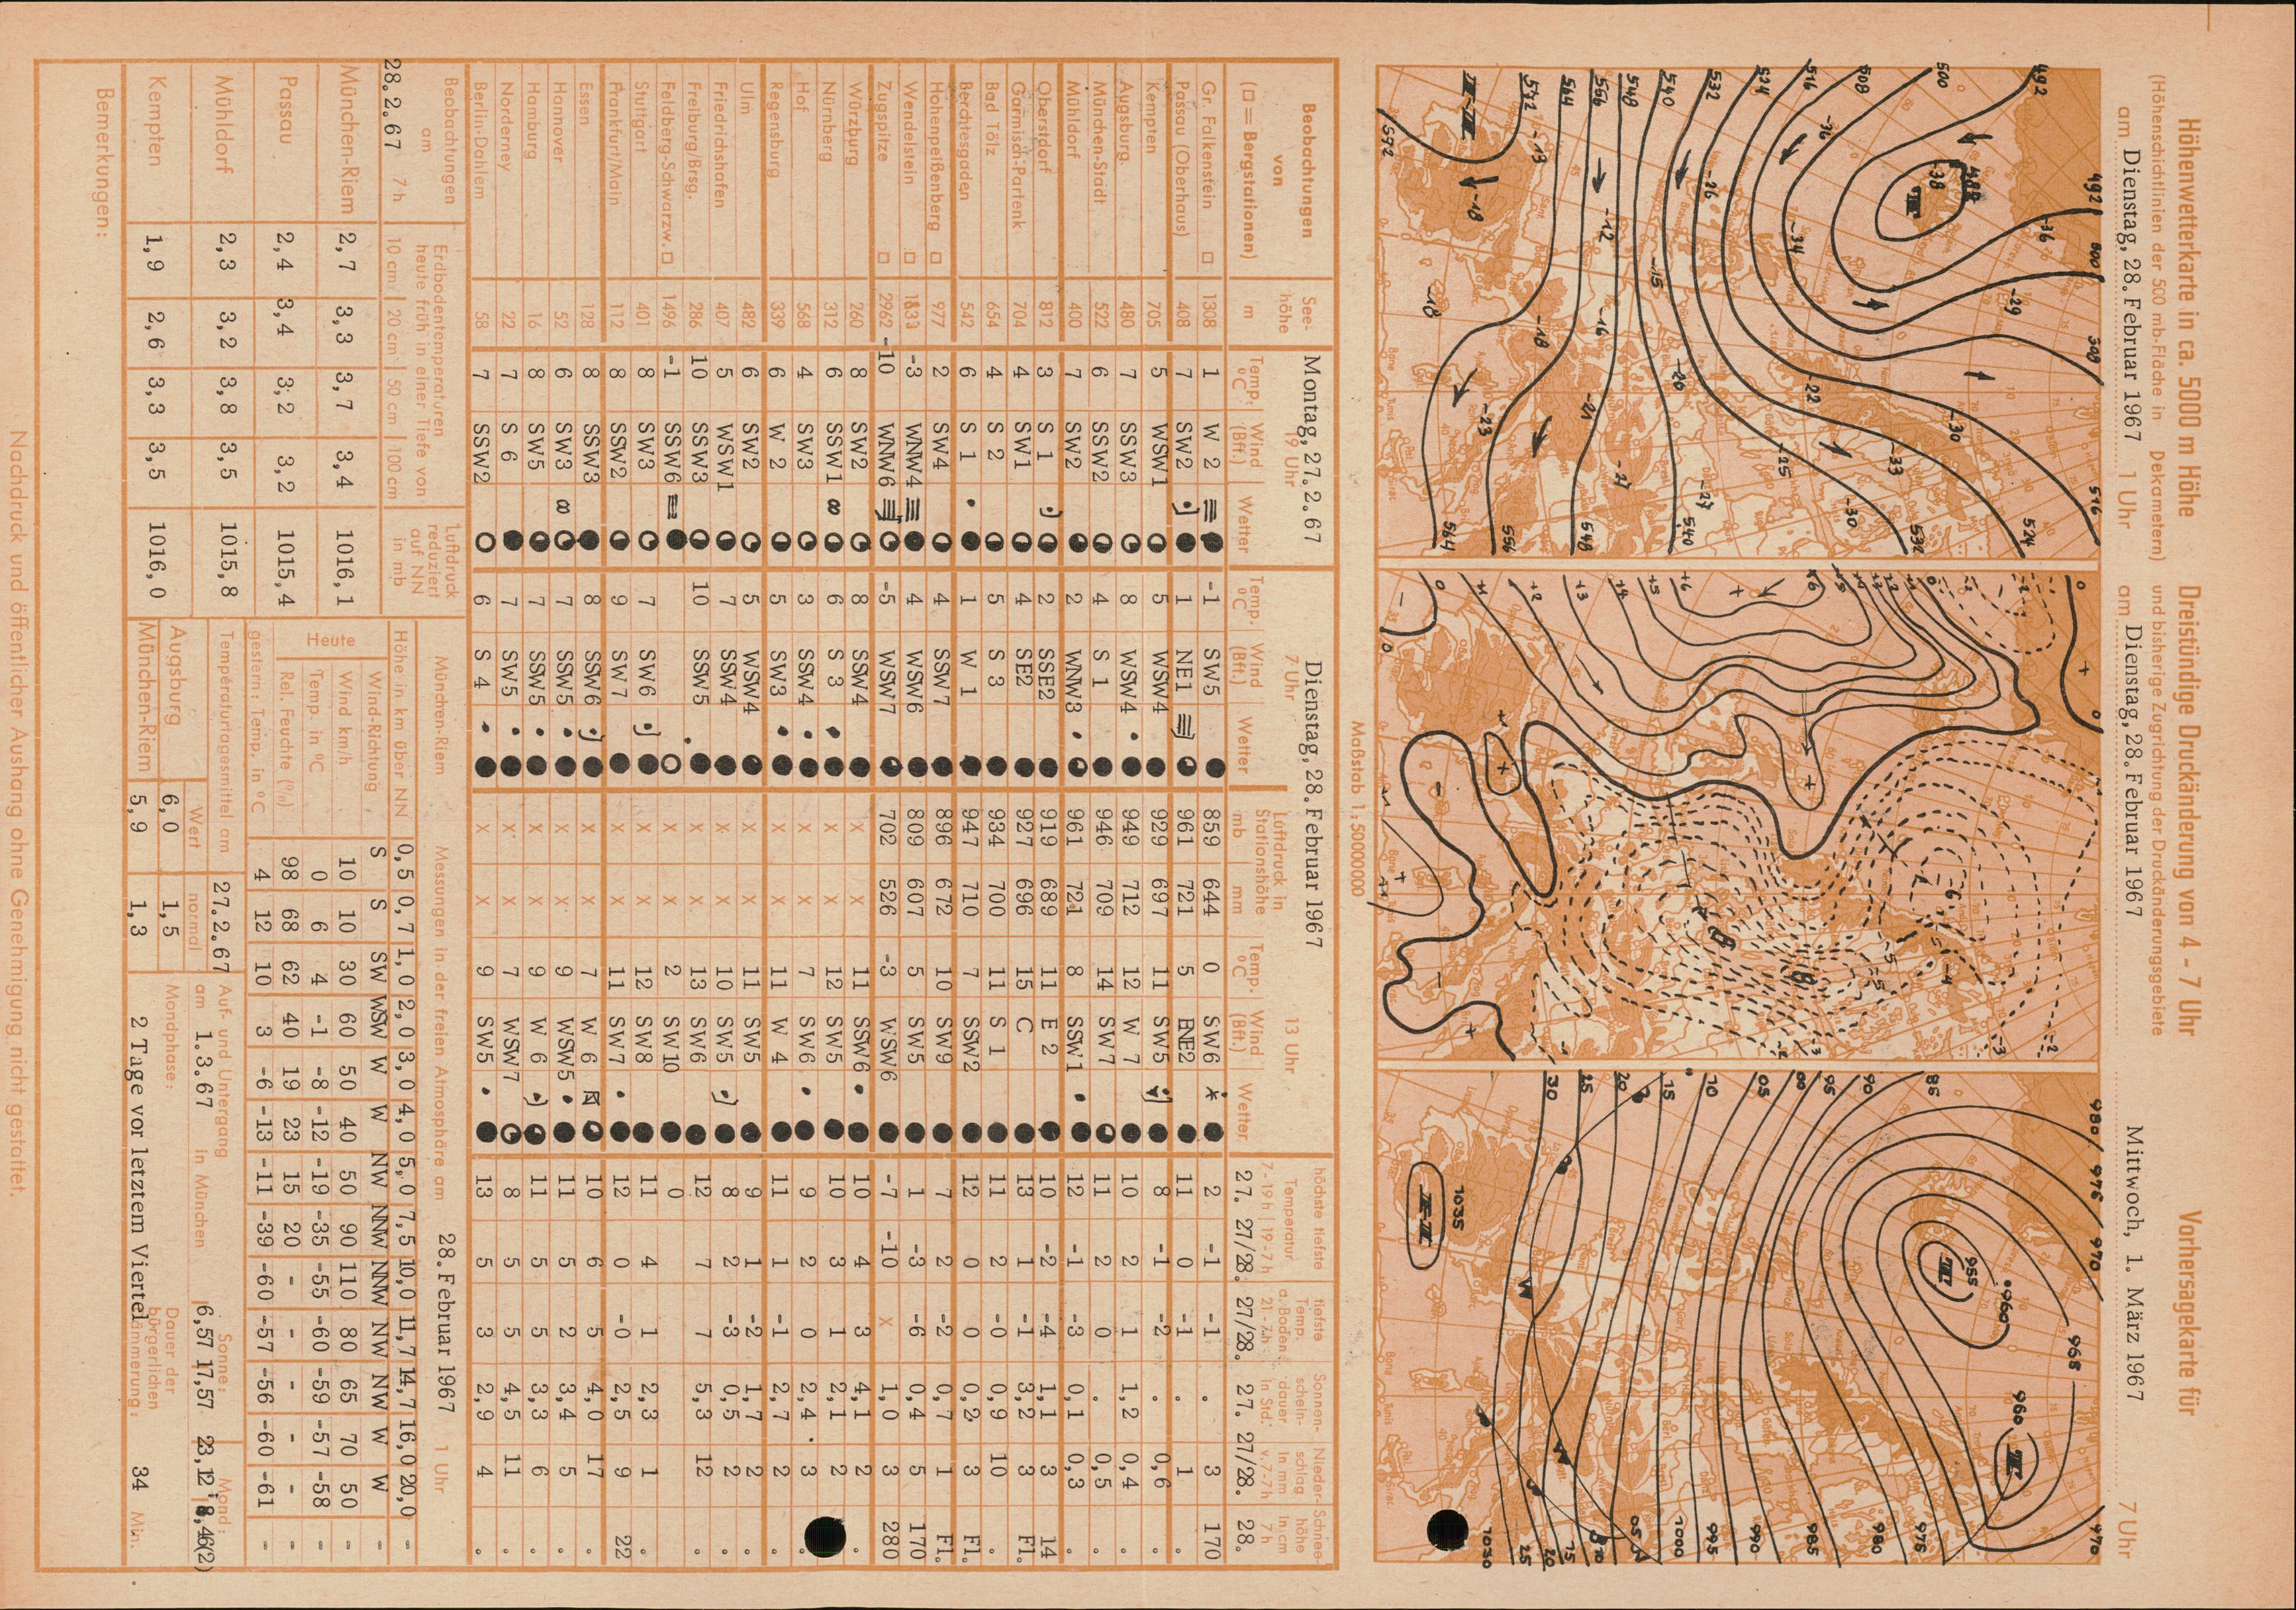 Höhenwetterkarte in ca. 5000 m Höhe
(Höhenschichtlinien der 500 mb-Fläche in Dekametern)
am Dienstag, 28. Februar 1967 1 Uhr
Dreistündige Druckänderung von 4 - 7 Uhr
und bisherige Zugrichtung der Druckänderungsgebiete
am Dienstag, 28. Februar 1967
Vorhersagekarte für
Mittwoch, 1. März 1967 7 Uhr
492 492 500 508 516
500 508 516 524 532 540 548 556 564 572 592
524 532 540 548 556 564
980 976 970 968 960 970
955 960 1035
30 25 20 15 10 05 00 95 90 85
1030 25 20 15 10 05 1000 995 990 985 980 975
Maßstab 1:50000000
Beobachtungen von (□ = Bergstationen) Seehöhe m
Montag, 27.2.67 19 Uhr
Temp. °C Wind (Bft.) Wetter
Dienstag, 28. Februar 1967
7 Uhr Temp. °C Wind (Bft.) Wetter
Luftdruck in Stationshöhe mb mm
13 Uhr Temp. °C Wind (Bft.) Wetter
höchste tiefste Temperatur 7-19 h 19-7 h 27. 27/28.
tiefste Temp. a. Boden 21-7 h 27/28.
Sonnenscheindauer in Std. 27.
Niederschlag in mm v. 7-7 h 27/28.
Schneehöhe in cm 7 h 28.
Gr. Falkenstein □ 1308 1 W 2 -1 SW5 859 644 0 SW6 2 -1 -1 . 3 170
Passau (Oberhaus) 408 7 SW2 1 NE1 961 721 5 ENE2 11 0 -1 . 1 .
Kempten 705 5 WSW1 5 WSW4 929 697 11 SW5 8 -1 -2 . 0,6 .
Augsburg 480 7 SSW3 8 WSW4 949 712 12 W 7 10 2 1 1,2 0,4 .
München-Stadt 522 6 SSW2 4 S 1 946 709 14 SW7 11 2 0 . 0,5 .
Mühldorf 400 7 SW2 2 WNW3 961 721 8 SSW1 12 -1 -3 0,1 0,3 .
Oberstdorf 812 3 S 1 2 SSE2 919 689 11 E 2 10 -2 -4 1,1 3 14
Garmisch-Partenk 704 4 SW1 4 SE2 927 696 15 C 13 1 -1 3,2 3 Fl.
Bad Tölz 654 4 S 2 5 S 3 934 700 11 S 1 11 2 -0 0,9 10 .
Berchtesgaden 542 6 S 1 1 W 1 947 710 7 SSW2 12 0 0 0,2 3 Fl.
Hohenpeißenberg □ 977 2 SW4 4 SSW7 896 672 10 SW9 7 2 -2 0,7 1 Fl.
Wendelstein □ -3 WNW4 4 WSW6 809 607 5 SW5 1 -3 -6 0,4 5 170
Zugspitze □ 2962 -10 WNW6 -5 WSW7 702 526 -3 WSW6 -7 -10 X 1,0 3 280
Würzburg 260 8 SW2 8 SSW4 X X 11 SSW6 10 4 3 4,1 2 .
Nürnberg 312 6 SSW1 6 S 3 X X 12 SW5 10 3 1 2,1 2
Hof 568 4 SW3 3 SSW4 X X 7 SW6 9 2 0 2,4 3 .
Regensburg 339 6 W 2 5 SW3 X X 11 W 4 11 1 -1 2,7 2 .
Ulm 482 6 SW2 5 WSW4 X X 11 SW5 9 1 -2 1,7 2 .
Friedrichshafen 407 5 WSW1 7 SSW4 X X 10 SW5 8 2 -3 0,5 2 .
Freiburg/Brsg. 286 10 SSW3 10 SSW5 X X 13 SW6 12 7 7 5,3 12 .
Feldberg-Schwarzw. □ 1496 -1 SSW6 X X 2 SW10 0
Stuttgart 401 8 SW3 7 SW6 X X 12 SW8 11 4 1 2,3 1 .
Frankfurt/Main 112 8 SSW2 9 SW7 X X 11 SW7 12 0 -0 2,5 9 22
Essen 128 8 SSW3 8 SSW6 X X 7 W 6 10 6 5 4,0 17 .
Hannover 52 6 SW3 7 SSW5 X X 9 WSW5 11 5 2 3,4 5 .
Hamburg 16 8 SW5 7 SSW5 X X 9 W 6 11 5 5 3,3 6 .
Norderney 22 7 S 6 7 SW5 X X 7 WSW7 8 5 5 4,5 11 .
Berlin-Dahlem 58 7 SSW2 6 S 4 X X 9 SW5 13 5 3 2,9 4 .
Beobachtungen am 28.2.67 7 h
Erdbodentemperaturen heute früh in einer Tiefe von
10 cm 20 cm 50 cm 100 cm
Luftdruck reduziert auf NN in mb
München-Riem 2,7 3,3 3,7 3,4 1016,1
Passau 2,4 3,4 3,2 3,2 1015,4
Mühldorf 2,3 3,2 3,8 3,5 1015,8
Kempten 1,9 2,6 3,3 3,5 1016,0
Bemerkungen:
München-Riem Messungen in der freien Atmosphäre am 28. Februar 1967 1 Uhr
Höhe in km über NN 0,5 0,7 1,0 2,0 3,0 4,0 5,0 7,5 10,0 11,7 14,7 16,0 20,0 -
Heute
Wind-Richtung S S SW WSW W W NW NNW NNW NW NW W W -
Wind km/h 10 10 30 60 50 40 50 90 110 80 65 70 50 -
Temp. in °C 0 6 4 -1 -8 -12 -19 -35 -55 -60 -59 -57 -58 -
Rel. Feuchte (%) 98 68 62 40 19 23 15 20 - - - - - -
gestern: Temp. in °C 4 12 10 3 -6 -13 -11 -39 -60 -57 -56 -60 -61 -
Temperaturtagesmittel am 27.2.67
Wert normal
Augsburg 6,0 1,5
München-Riem 5,9 1,3
Auf- und Untergang am 1.3.67 in München
Sonne: 6,57 17,57
Mond: 23,12 8,46(2)
Mondphase: 2 Tage vor letztem Viertel
Dauer der bürgerlichen Dämmerung: 34 Min.
Nachdruck und öffentlicher Aushang ohne Genehmigung nicht gestattet.